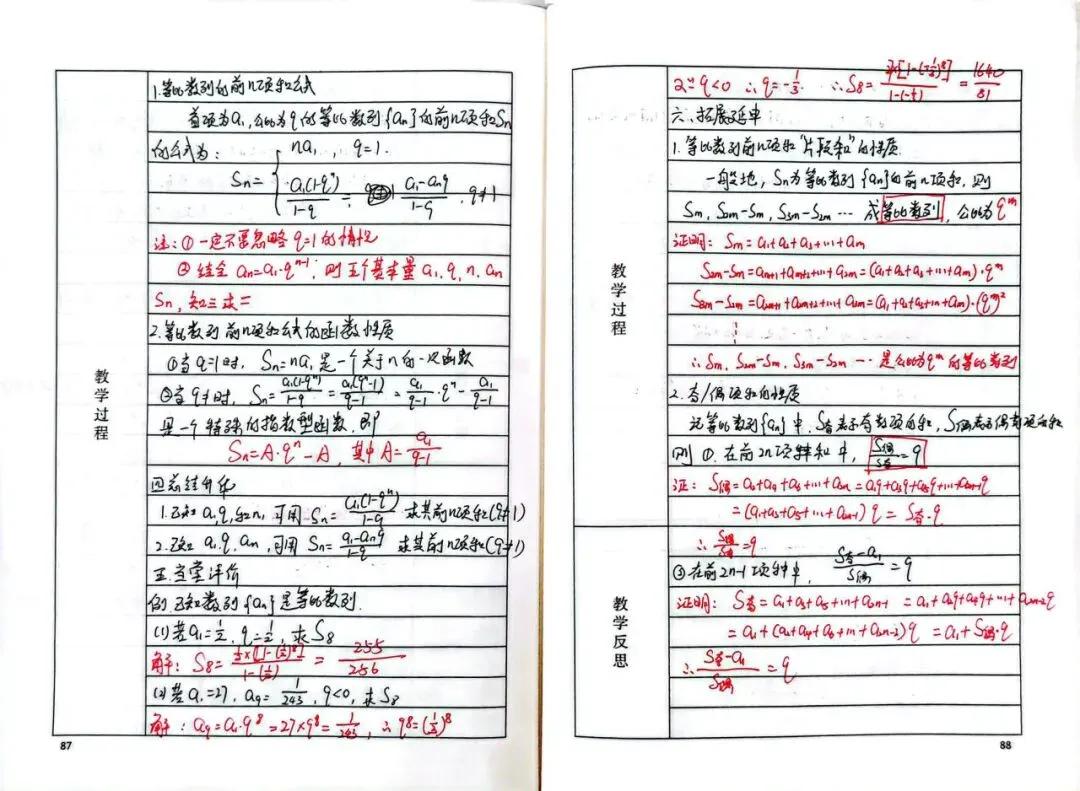 教学过程
1.等比数列的前n项和公式
首项为a₁,公比为q的等比数列{aₙ}的前n项和Sₙ
的公式为:
Sₙ={ na₁, q=1.
a₁(1-qⁿ)/(1-q) = (a₁-aₙq)/(1-q), q≠1
注:① 一定不要忽略q=1的情况
② 结合aₙ=a₁·qⁿ⁻¹, 则五个基本量a₁,q,n,aₙ
Sₙ,知三求二
2.等比数列前n项和公式的函数性质
①当q=1时, Sₙ=na₁是一个关于n的一次函数
②当q≠1时, Sₙ=a₁(1-qⁿ)/(1-q)=a₁(qⁿ-1)/(q-1)=a₁/(q-1)·qⁿ-a₁/(q-1)
是一个特殊的指数型函数,即
Sₙ=A·qⁿ-A, 其中A=a₁/(q-1)
四总结升华
1.已知a₁,q,和n,可用Sₙ=a₁(1-qⁿ)/(1-q) 求其前n项和(q≠1)
2.已知a₁,q,aₙ,可用Sₙ=(a₁-aₙq)/(1-q) 求其前n项和(q≠1)
五.当堂评价
例.已知数列{aₙ}是等比数列.
(1)若a₁=1/2, q=1/2, 求S₈
解: S₈=1/2×[1-(1/2)⁸]/(1-(1/2))=255/256
(2)若a₁=27, a₉=1/243, q<0, 求S₈
解: a₉=a₁·q⁸=27×q⁸=1/243, ∴q⁸=(1/3)⁸
87
又∵q<0 ∴q=-1/3. ∴S₈=27[1-(-1/3)⁸]/(1-(-1/3))=1640/81
六.拓展延伸
1.等比数列前n项和"片段和"的性质.
一般地,Sₙ为等比数列{aₙ}的前n项和,则
Sₘ, S₂ₘ-Sₘ, S₃ₘ-S₂ₘ … 成等比数列, 公比为qᵐ
教学过程
证明: Sₘ=a₁+a₂+a₃+…+aₘ
S₂ₘ-Sₘ=aₘ₊₁+aₘ₊₂+…+a₂ₘ=(a₁+a₂+a₃+…+aₘ)·qᵐ
S₃ₘ-S₂ₘ=a₂ₘ₊₁+a₂ₘ₊₂+…+a₃ₘ=(a₁+a₂+a₃+…+aₘ)·(qᵐ)²
⋮
∴Sₘ, S₂ₘ-Sₘ, S₃ₘ-S₂ₘ … 是公比为qᵐ的等比数列
2.奇/偶项和的性质
记等比数列{aₙ}中,S奇表示奇数项的和,S偶表示偶数项的和
则 ①.在前2n项和中, S偶/S奇=q
证: S偶=a₂+a₄+a₆+…+a₂ₙ=a₁q+a₃q+a₅q+…+a₂ₙ₋₁q
=(a₁+a₃+a₅+…+a₂ₙ₋₁)q=S奇·q
∴S偶/S奇=q
②在前2n-1项和中, (S奇-a₁)/S偶=q
教学反思
证明: S奇=a₁+a₃+a₅+…+a₂ₙ₋₁=a₁+a₂q+a₄q+…+a₂ₙ₋₂q
=a₁+(a₂+a₄+a₆+…+a₂ₙ₋₂)q=a₁+S偶·q
∴(S奇-a₁)/S偶=q
88